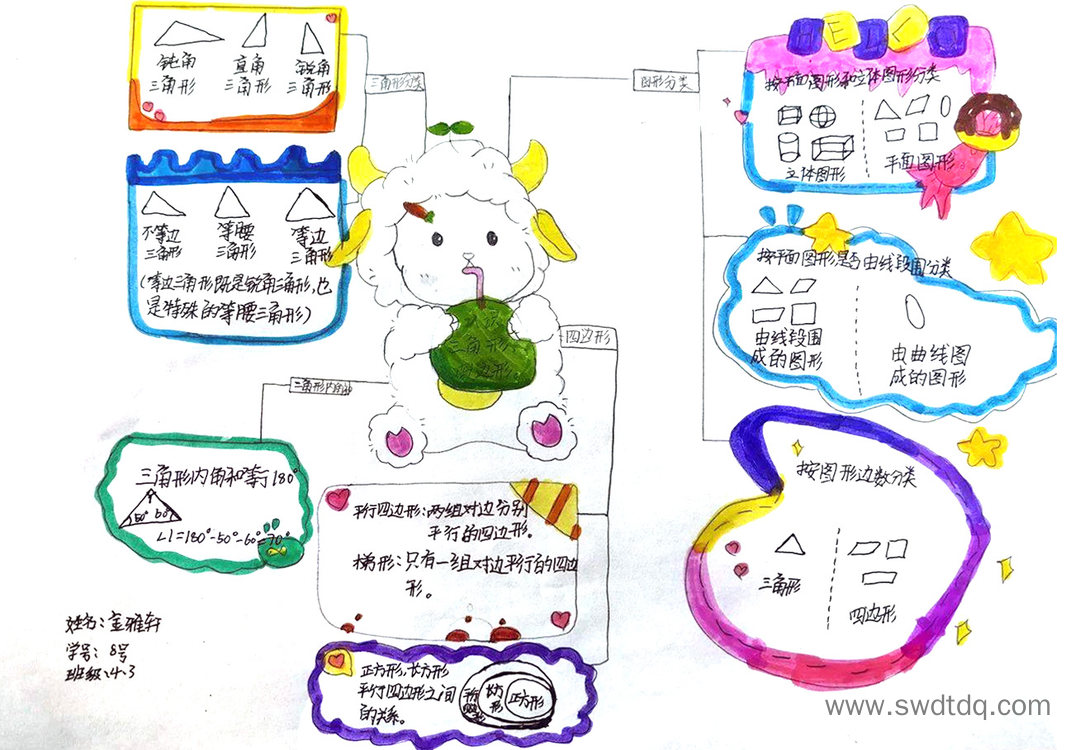 钝角
三角形
直角
三角形
锐角
三角形
三角形分类
不等边
三角形
等腰
三角形
等边
三角形
(等边三角形既是锐角三角形,也
是特殊的等腰三角形)
图形分类
HELLO
按平面图形和立体图形分类
立体图形
平面图形
按平面图形是否由线段围分类
由线段围
成的图形
由曲线图
成的图形
按图形边数分类
三角形
四边形
三角形
四边形
四边形
三角形内角和
三角形内角和等于180°
50° 60°
∠1=180°-50°-60°=70°
平行四边形:两组对边分别
平行的四边形。
梯形:只有一组对边平行的四边
形。
正方形,长方形
平行四边形之间
的关系。
长方
形
正方形
学号: 8号
班级:4.3
www.swdtdq.com